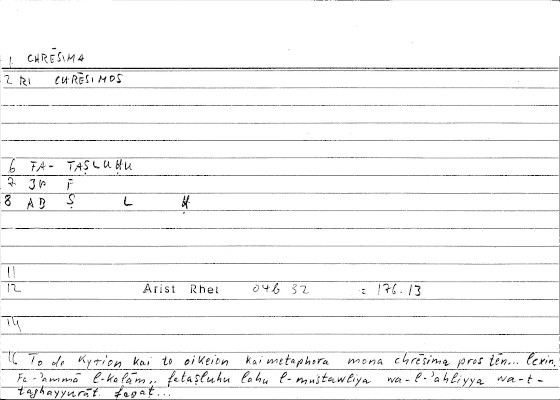 1 CHRĒSIMA
2 RI CHRĒSIMOS
6 FA- TAṢLUḤU
7 3W F
8 AB Ṣ L Ḥ
11
12 Arist Rhet 04b 32 = 176.13
14
16 To de kyrion kai to oikeion kai metaphora mona chrēsima pros tēn... lexin,
Fa-'ammā l-kalām,. fataṣluhu lahu l-mustawliya wa-l-'ahliyya wa-t-
taghayyurāt faqaṭ...